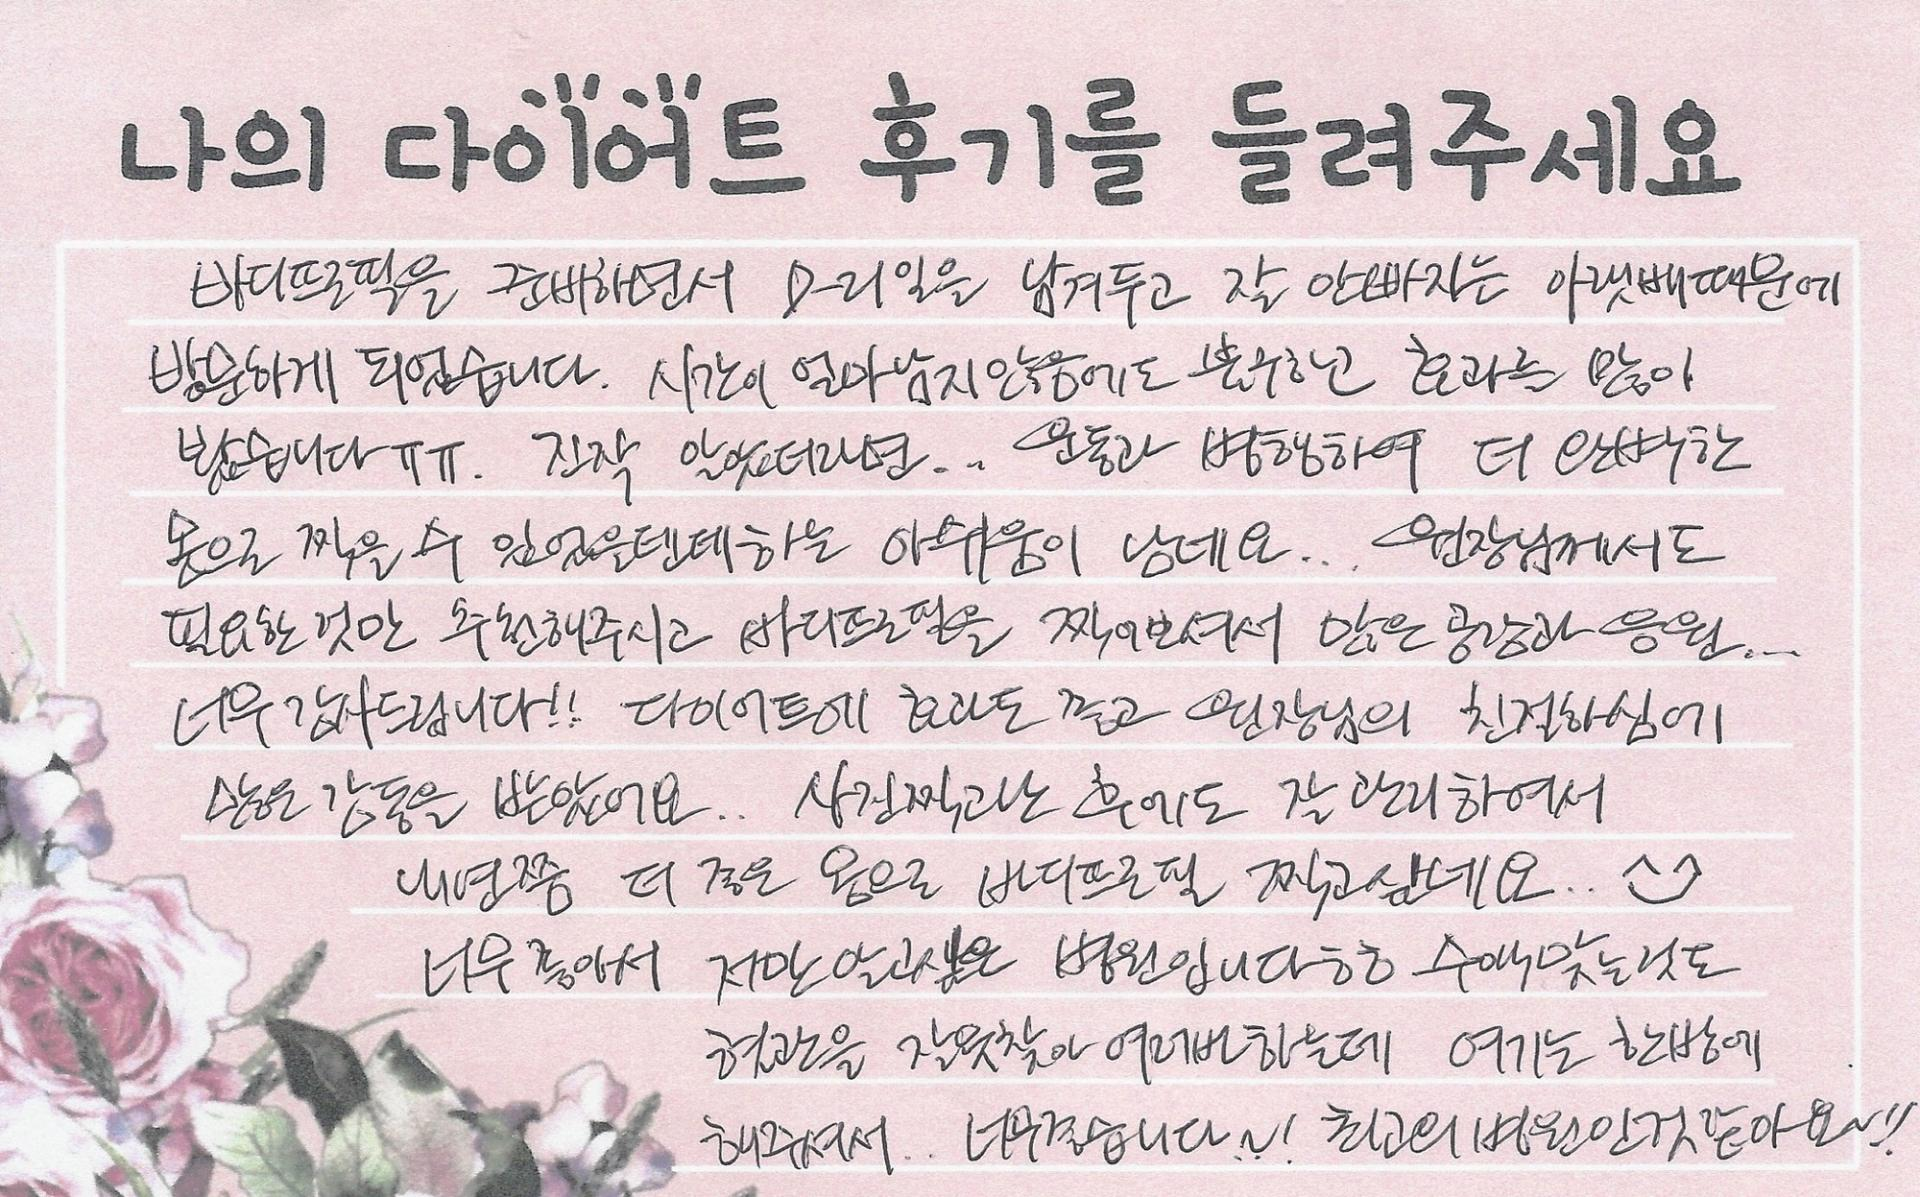 나의 다이어트 후기를 들려주세요
바디프로필을 준비하면서 D-21일을 남겨두고 잘 안빠지는 아랫배때문에
방문하게 되었습니다. 시간이 얼마남지않음에도 불구하고 효과는 많이
봤습니다ㅠㅠ. 진작 알았더라면... 운동과 병행하여 더 완벽한
몸으로 찍을 수 있었을텐데하는 아쉬움이 남네요... 원장님께서도
필요한것만 추천해주시고 바디프로필을 찍어보셔서 많은 공감과 응원...
너무 감사드립니다!! 다이어트에 효과도 좋고 원장님의 친절하심에
많은 감동을 받았어요.. 사진찍고나는 후에도 잘 관리하여서
내년쯤 더 좋은 몸으로 바디프로필 찍고싶네요..
너무좋아서 저만알고싶은 병원입니다ㅎㅎ 수액맞는것도
혈관을 잘못찾아 여러번하는데 여기는 한방에
해주셔서.. 너무좋습니다~! 최고의병원인것같아요~!!